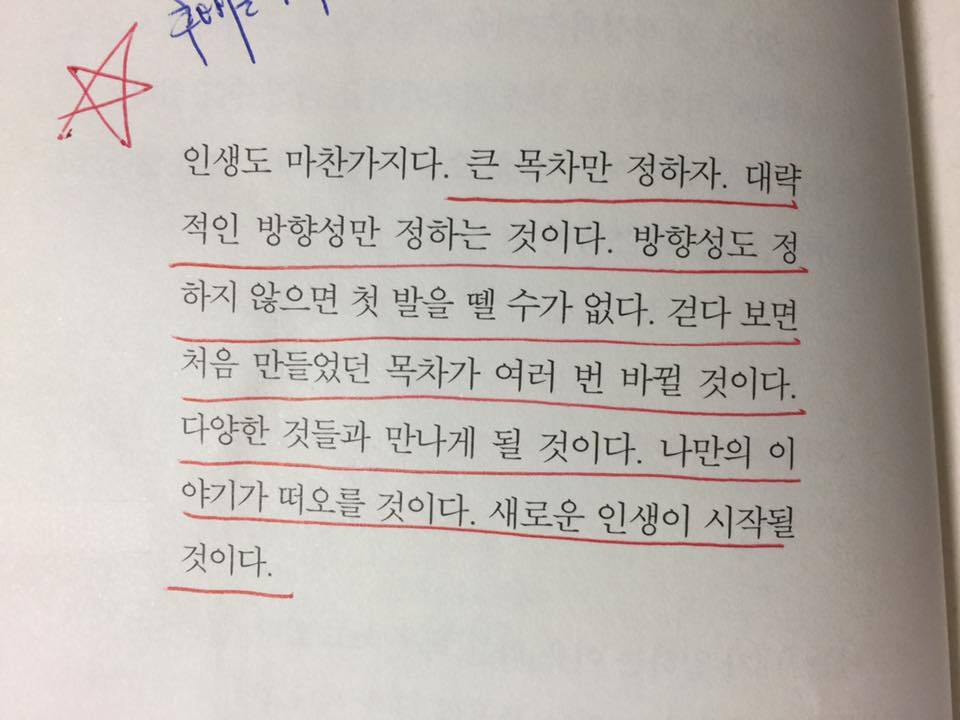 인생도 마찬가지다. 큰 목차만 정하자. 대략
적인 방향성만 정하는 것이다. 방향성도 정
하지 않으면 첫 발을 뗄 수가 없다. 걷다 보면
처음 만들었던 목차가 여러 번 바뀔 것이다.
다양한 것들과 만나게 될 것이다. 나만의 이
야기가 떠오를 것이다. 새로운 인생이 시작될
것이다.